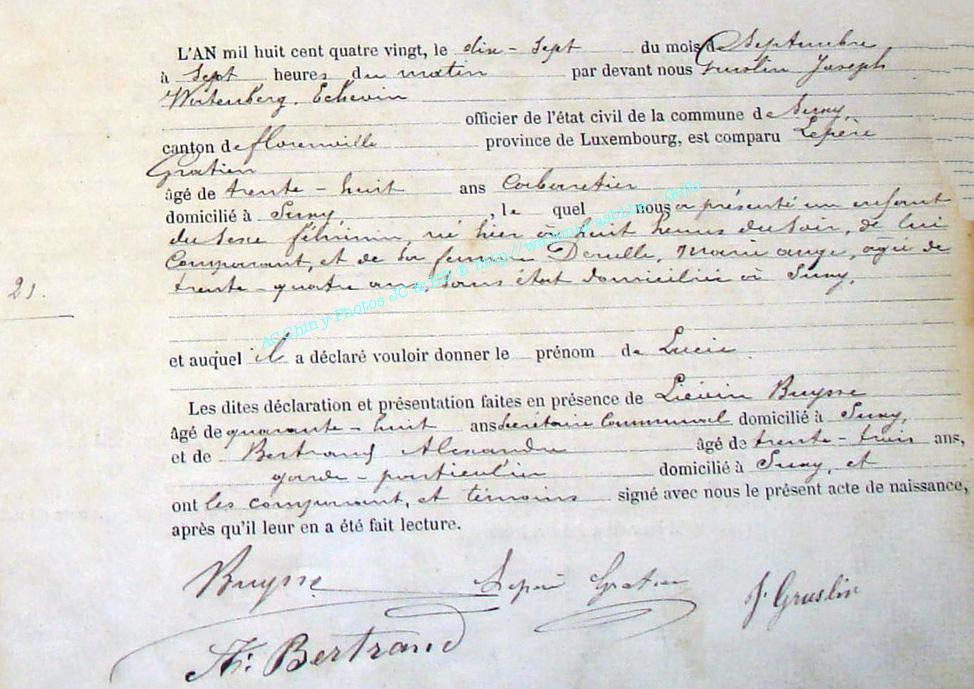 L'AN mil huit cent quatre vingt, le dix-sept du mois de Septembre
à Sept heures du matin par devant nous Gruslin Joseph
Echevin
officier de l'état civil de la commune de Suxy,
canton de florenville province de Luxembourg, est comparu Lepère
Gratien
âgé de trente-huit ans Cabaretier
domicilié à Suxy, , le quel nous a présenté un enfant
du sexe féminin, né hier à huit heures du soir, de lui
Comparant, et de sa femme Marie ange, agée de
trente-quatre ans, sans état domiciliée à Suxy,
21.
et auquel il a déclaré vouloir donner le prénom de Lucie
Les dites déclaration et présentation faites en présence de Liévin Buysse
âgé de quarante-huit ans secrétaire Communal domicilié à Suxy,
et de Bertrand Alexandre âgé de trente-trois ans,
garde-particulier domicilié à Suxy, et
ont les comparant, et témoins signé avec nous le présent acte de naissance,
après qu'il leur en a été fait lecture.
Buysse Lepère Gratien J. Gruslin
Ax: Bertrand
AC Chiny Photos JC